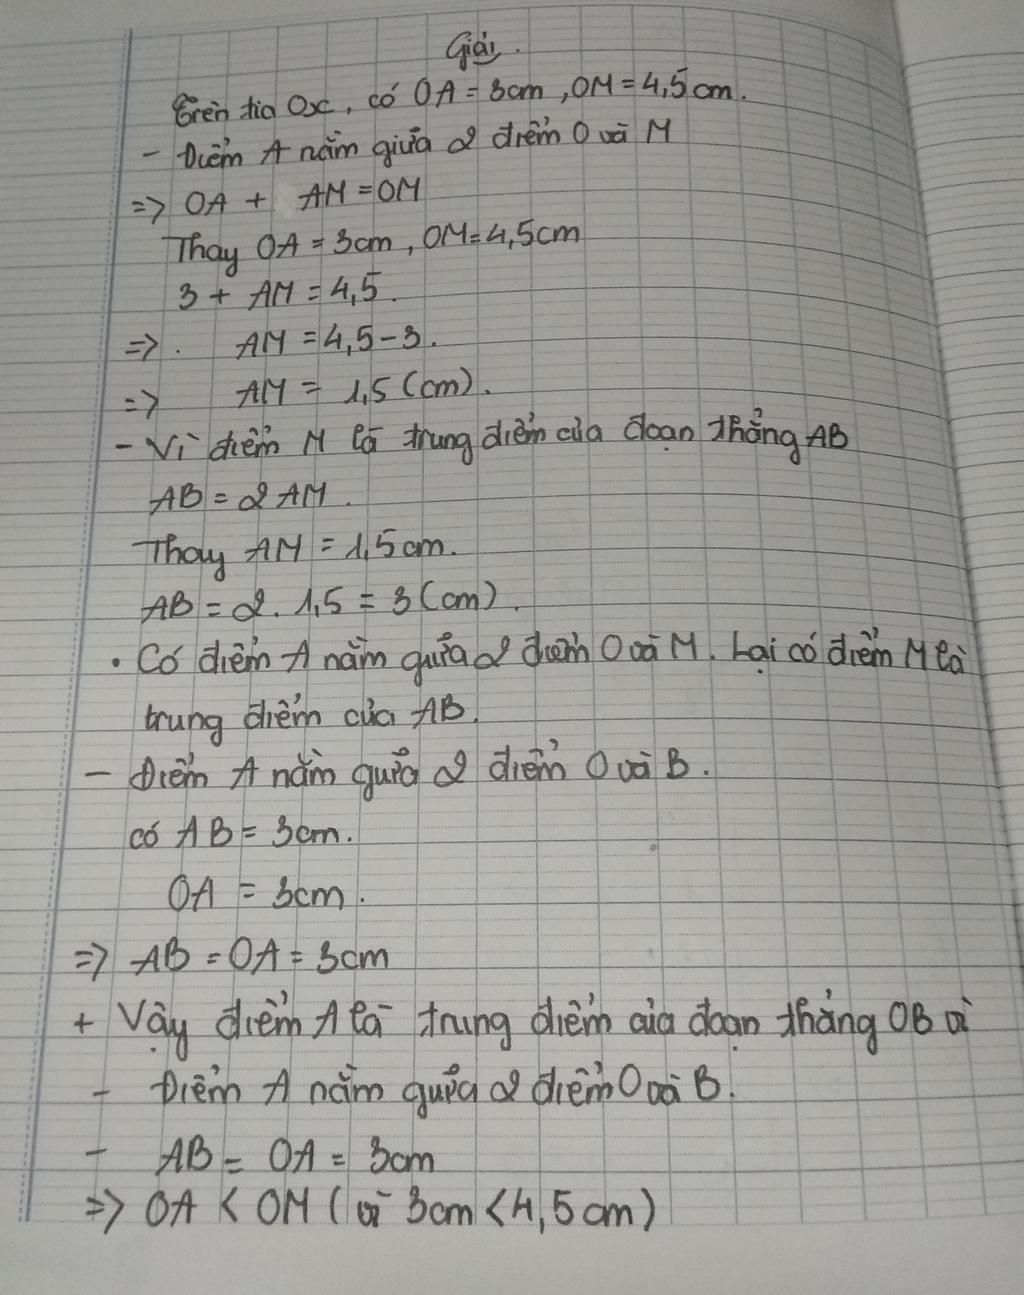 Giải.
Trên tia Ox, có OA = 3cm, OM = 4,5cm.
- Điểm A nằm giữa 2 điểm O và M
=> OA + AM = OM
Thay OA = 3cm, OM = 4,5cm
3 + AM = 4,5.
=> . AM = 4,5 - 3.
=> AM = 1,5 (cm).
- Vì điểm M là trung điểm của đoạn thẳng AB
AB = 2 AM.
Thay AM = 1,5 cm.
AB = 2. 1,5 = 3 (cm).
• Có điểm A nằm giữa 2 điểm O và M. Lại có điểm M là
trung điểm của AB.
- Điểm A nằm giữa 2 điểm O và B.
có AB = 3cm.
OA = 3cm.
=> AB = OA = 3cm
+ Vậy điểm A là trung điểm của đoạn thẳng OB vì
- Điểm A nằm giữa 2 điểm O và B.
- AB = OA = 3cm
=> OA < OM ( vì 3cm < 4,5 cm)